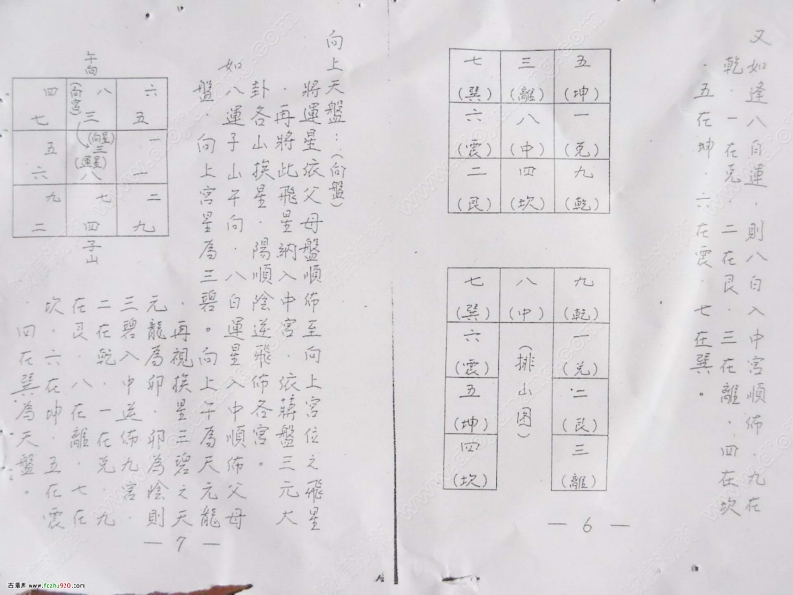 又如逢八白運．則八白入中宮順佈．九在
乾．一在兌．二在艮．三在離．四在坎
．五在坤．六在震．七在巽。
七 三 五
(巽) (離) (坤)
六 八 一
(震) (中) (兌)
二 四 九
(艮) (坎) (乾)
七 八 九
(巽) (中) (乾)
六 一
(震) (兌)
五 二
(坤) (艮)
四 三
(坎) (離)
(排山图)
— 6 —
向上天盤：(向盤)
將運星依父母盤順佈至向上宮位之飛星
．再將此飛星納入中宮．依蔣盤三元大
卦各山挨星．陽順陰逆飛佈各宮。
如八運子山午向．八白運星入中順佈父母
盤．向上宮星為三碧。向上午為天元龍
．再視挨星三碧之天
元龍為卯．卯為陰則
三碧入中逆佈九宮．
二在乾．一在兌．九
在艮．八在離．七在
坎．六在坤．五在震
．四在巽為天盤。
午向
四 八 六
(向宮)
七 三 五
(向星)
五 三 一
(運星)
六 八 一
九 七 二
二 四 九
子山
— 7 —
古籍库 www.fczhu920.com